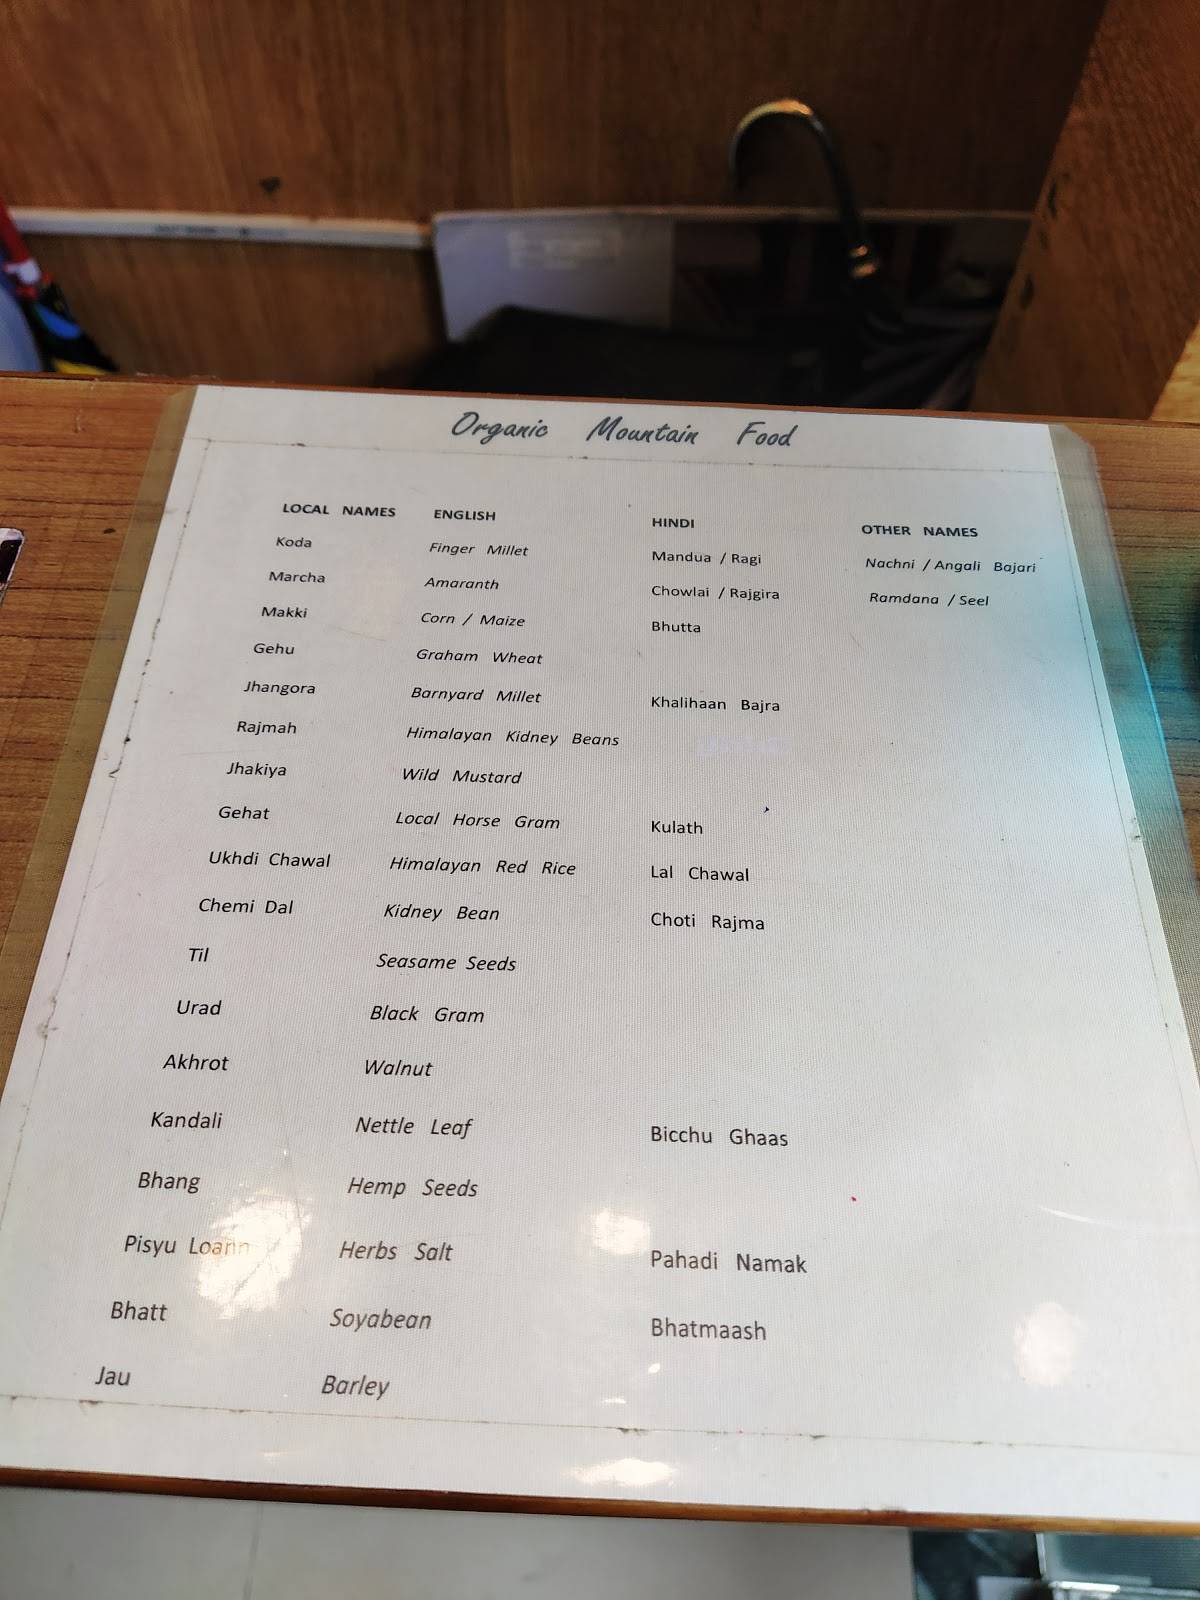 Organic Mountain Food
LOCAL NAMES ENGLISH HINDI OTHER NAMES
Koda Finger Millet Mandua / Ragi Nachni / Angali Bajari
Marcha Amaranth Chowlai / Rajgira Ramdana / Seel
Makki Corn / Maize Bhutta
Gehu Graham Wheat
Jhangora Barnyard Millet Khalihaan Bajra
Rajmah Himalayan Kidney Beans
Jhakiya Wild Mustard
Gehat Local Horse Gram Kulath
Ukhdi Chawal Himalayan Red Rice Lal Chawal
Chemi Dal Kidney Bean Choti Rajma
Til Seasame Seeds
Urad Black Gram
Akhrot Walnut
Kandali Nettle Leaf Bicchu Ghaas
Bhang Hemp Seeds
Pisyu Loann Herbs Salt Pahadi Namak
Bhatt Soyabean Bhatmaash
Jau Barley